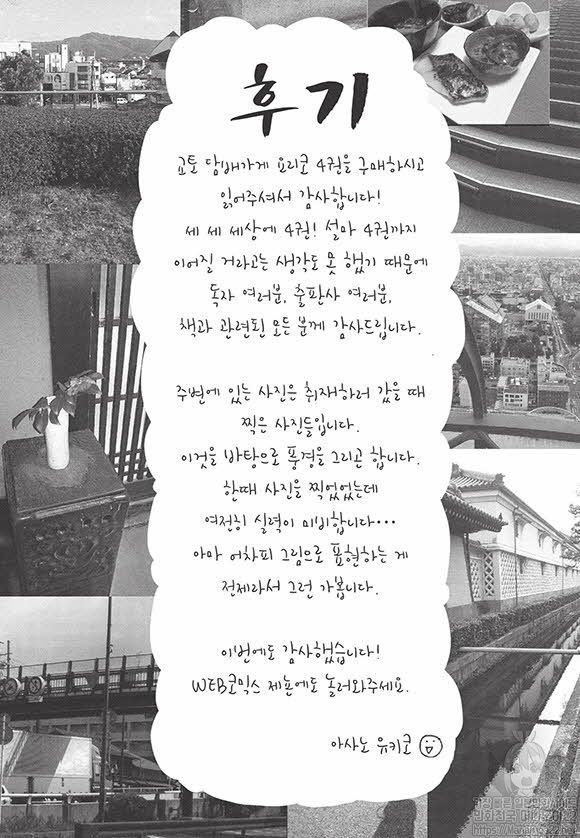 후기
교토 담배가게 요리코 4권을 구매하시고
읽어주셔서 감사합니다!
세 세 세상에 4권! 설마 4권까지
이어질 거라고는 생각도 못 했기 때문에
독자 여러분, 출판사 여러분,
책과 관련된 모든 분께 감사드립니다.
주변에 있는 사진은 취재하러 갔을 때
찍은 사진들입니다.
이것을 바탕으로 풍경을 그리곤 합니다.
한때 사진을 찍었었는데
여전히 실력이 미비합니다···
아마 어차피 그림으로 표현하는 게
전제라서 그런 가봅니다.
이번에도 감사했습니다!
WEB코믹스 제논에도 놀러와주세요.
아사노 유키코